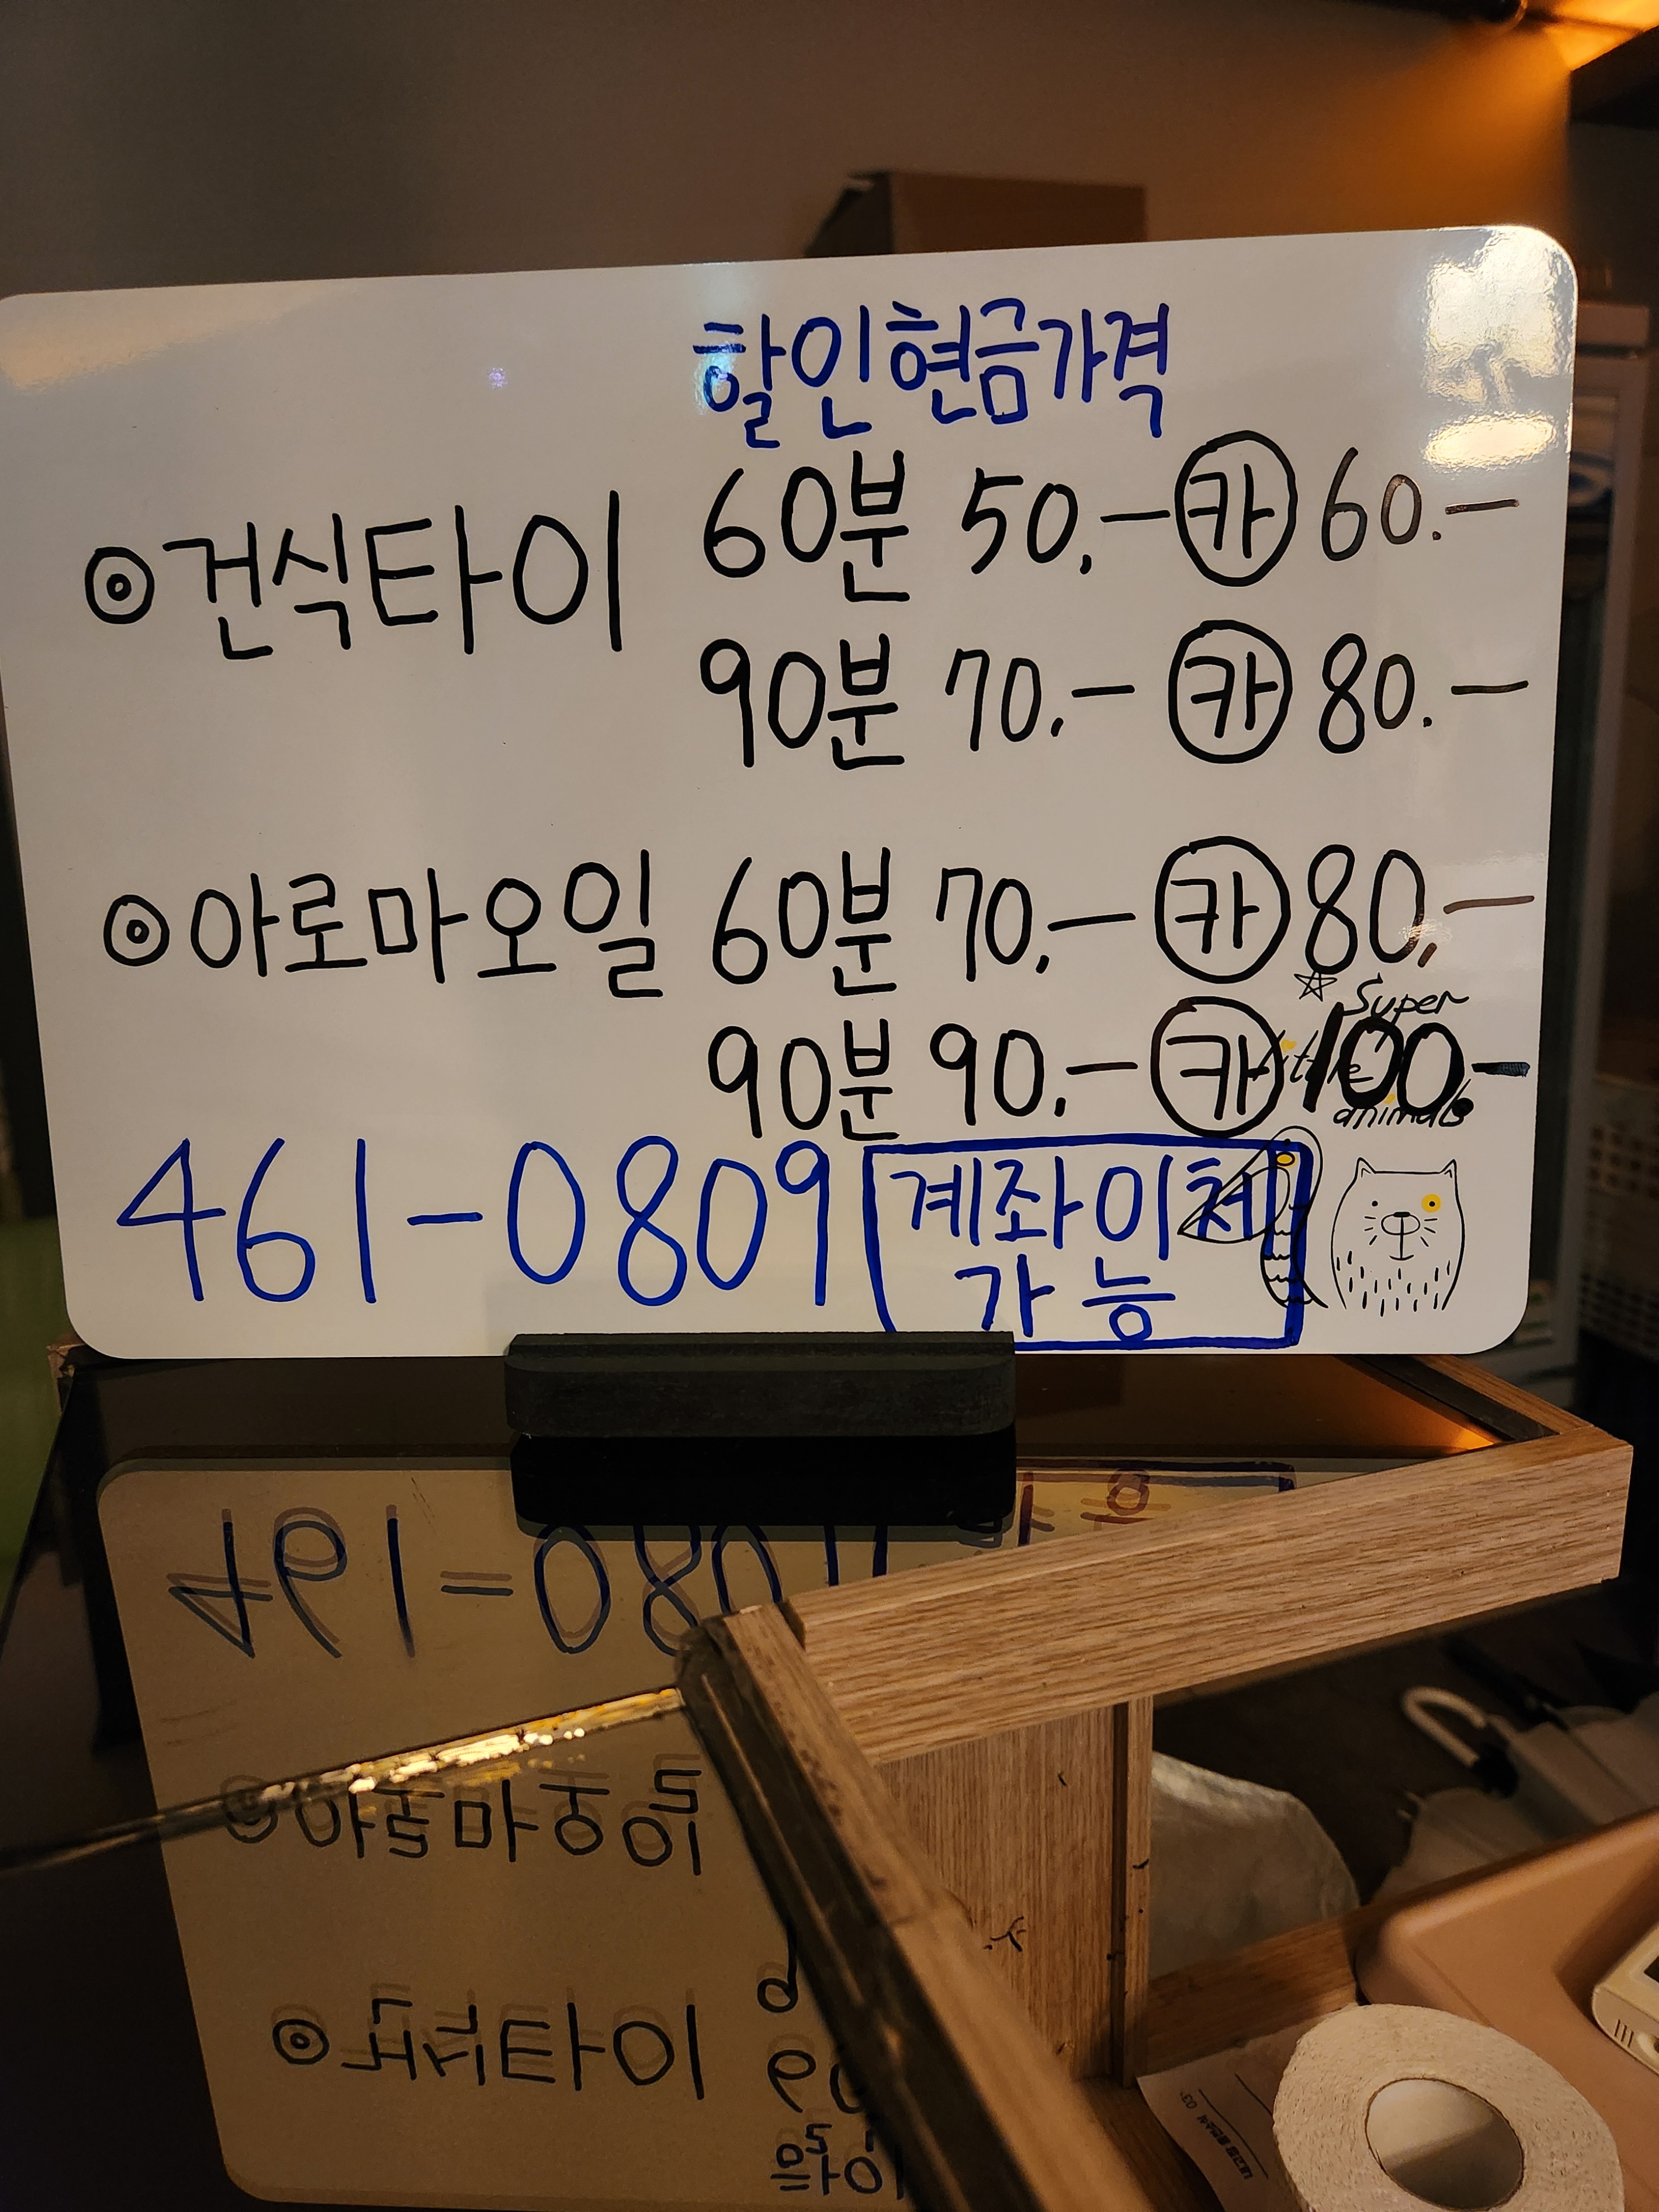 할인현금가격
⊙건식타이 60분 50,— ㉸ 60.—
90분 70.— ㉸ 80.—
⊙아로마오일 60분 70,— ㉸ 80,—
90분 90.— ㉸ 100.—
☆ Super
little
animals
461-0809 계좌이체
가능